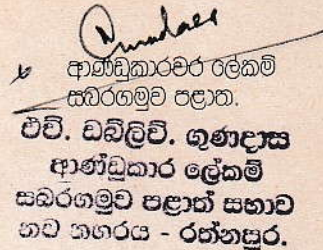 ආණ්ඩුකාරවර ලේකම්
සබරගමුව පළාත.
එච්. ඩබ්ලිව්. ගුණදාස
ආණ්ඩුකාර ලේකම්
සබරගමුව පළාත් සභාව
නව නගරය - රත්නපුර.